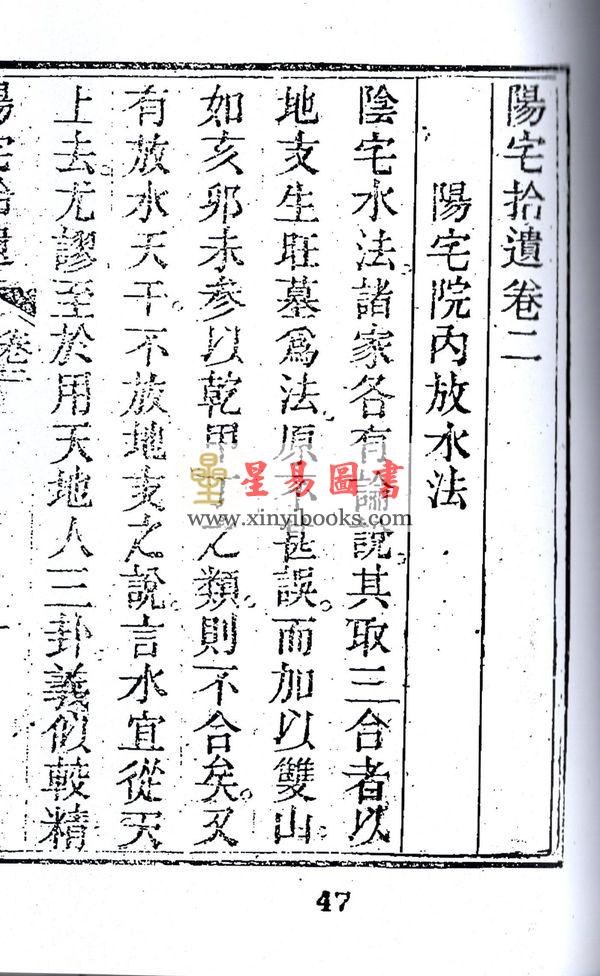 陽宅拾遺卷二
陽宅院內放水法
陰宅水法諸家各有論說其取三合者以
地支生旺墓為法原亥甚誤而加以雙山
如亥卯未參以乾甲丁之類則不合矣又
有放水天干不放地支之說言水宜從天
上去尤謬至於用天地人三卦義似較精
陽宅拾遺 卷二
星易圖書
www.xinyibooks.com
47